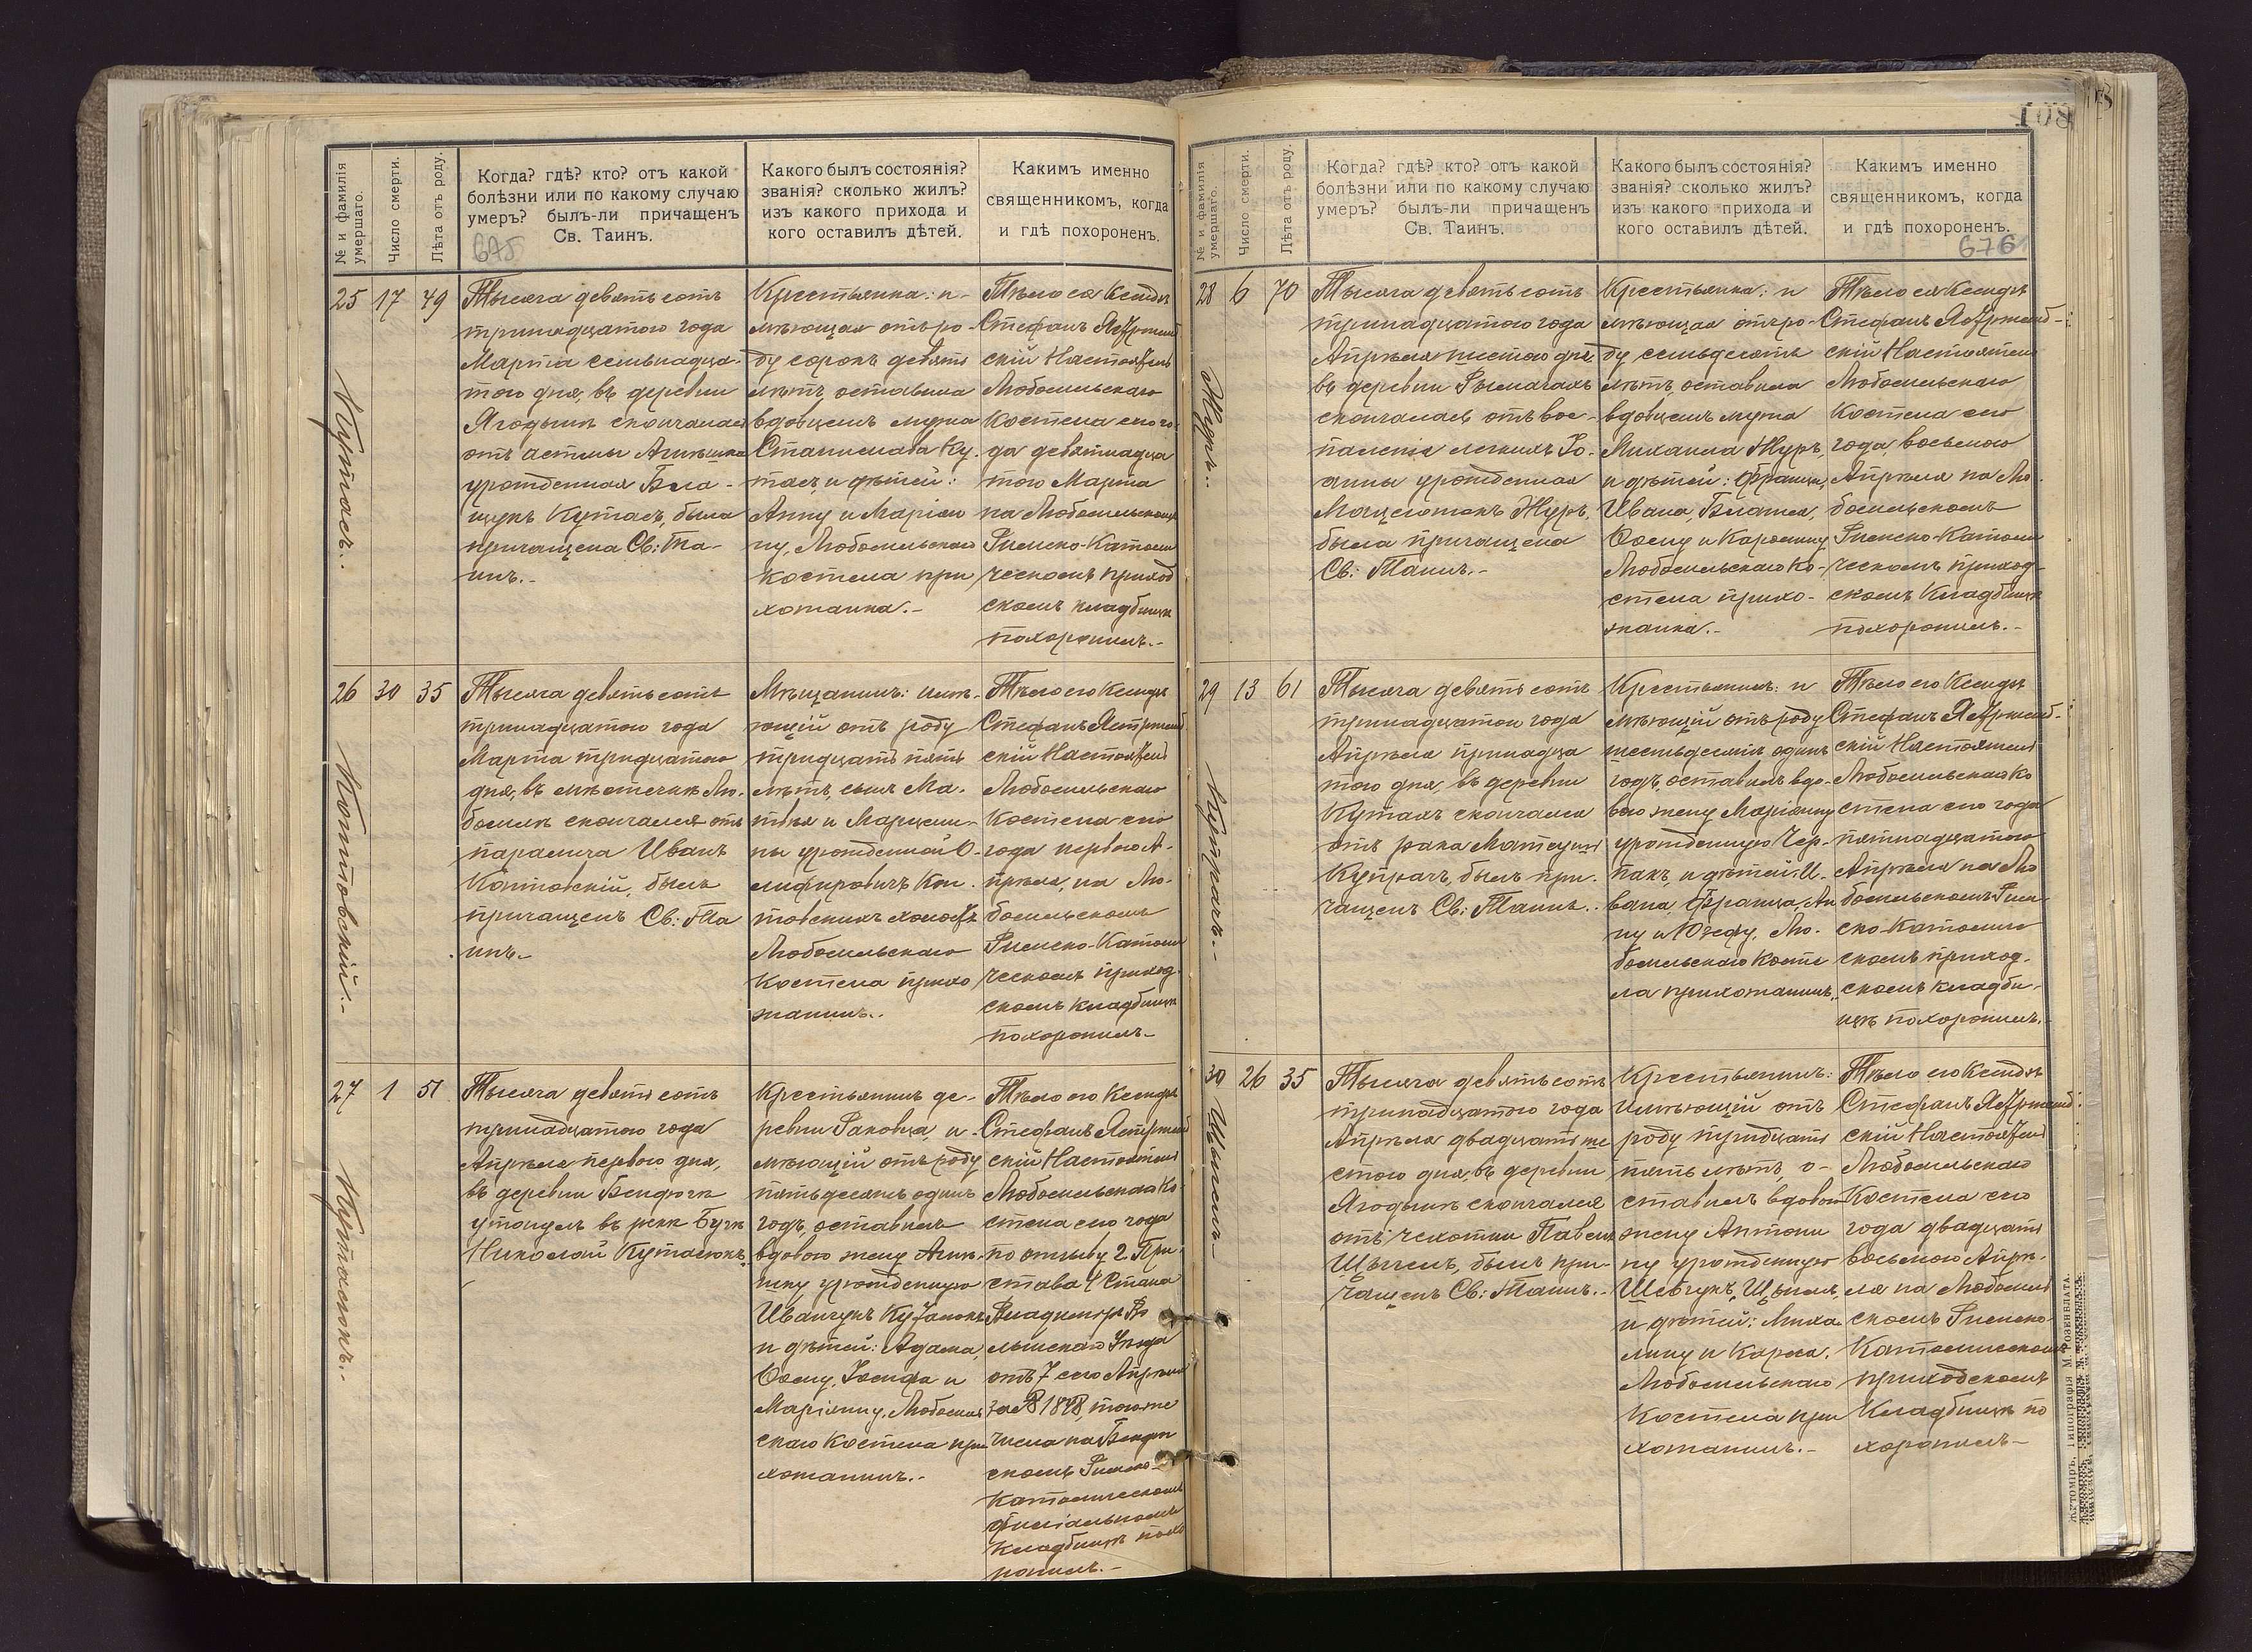 № и фамилія умершаго.
Число смерти.
Лѣта отъ роду.
Когда? гдѣ? кто? отъ какой
болѣзни или по какому случаю
умеръ? былъ-ли причащенъ
Св. Таинъ.
675
Какого былъ состоянія?
званія? сколько жилъ?
изъ какого прихода и
кого оставилъ дѣтей.
Какимъ именно
священникомъ, когда
и гдѣ похороненъ.
25 17 49
Кутась.-
Тысяча девятьсотъ
тринадцатого года
Марта семьнадца-
того дня, въ деревни
Ягодынѣ скончалась
отъ астмы Агнѣшка
урожденная Бла-
щукъ Кутась, была
причащена Св: Та-
инъ.-
Крестьянка: и-
мѣющая отъ ро-
ду сорокъ девять
лѣтъ, оставила
вдовцемъ мужа
Станислава Ку-
тась, и дѣтей:
Анну и Маріан-
ну, Любомльскаго
костела при
хожанка.-
Тѣло ея Ксендзъ
Стефанъ Ястржемб
скій Настоятель
Любомльскаго
Костела сего го-
да девятнадца
того Марта
на Любомльскомъ
Римско-Католи
ческомъ приход
скомъ кладбищѣ
похоронилъ.-
26 30 35
Котовскій.-
Тысяча девятьсотъ
тринадцатого года
Марта тридцатого
дня, въ мѣстечкѣ Лю-
бомлѣ скончался отъ
паралича Иванъ
Котовскій, былъ
причащенъ Св: Та
инъ.-
Мѣщанинъ: имѣ-
ющій отъ роду
тридцать пять
лѣтъ, сынъ Ма-
твѣя и Марцели-
ны урожденной О-
лифировичъ Ко-
товскихъ холостъ
Любомльскаго
Костела прихо
жанинъ.-
Тѣло его Ксендзъ
Стефанъ Ястржемб
скій Настоятель
Любомльскаго
Костела сего
года перваго А-
прѣля, на Лю-
бомльскомъ
Римско-Католи
ческомъ приход-
скомъ кладбищѣ
похоронилъ-
27 1 51
Кутасюкъ.-
Тысяча девятьсотъ
тринадцатого года
Апрѣля перваго дня,
въ деревни Бендюгѣ
утонулъ въ рекѣ Бугѣ
Николай Кутасюкъ.
Крестьянинъ де-
ревни Раковца, и-
мѣющій отъ роду
пятьдесятъ одинъ
годъ, оставилъ
вдовою жену Агнѣ-
шку урожденную
Иванчукъ Кутасюкъ
и дѣтей: Адама,
Юзефу, Іосифа и
Маріанну, Любомль
скаго Костела при
хожанинъ.-
Тѣло его Ксендзъ
Стефанъ Ястржемб
скій Настоятель
Любомльскаго Ко-
стела сего года
по отзыву 2 При-
става 4 Стана
Владиміръ Во
лынскаго Уѣзда
отъ 7 сего Апрѣля
за № 1898, того же
числа на
скомъ Римско-
Католическомъ
филіальномъ
Кладбищѣ похо
ронилъ.-
№ и фамилія умершаго.
Число смерти.
Лѣта отъ роду.
Когда? гдѣ? кто? отъ какой
болѣзни или по какому случаю
умеръ? былъ-ли причащенъ
Св. Таинъ.
Какого былъ состоянія?
званія? сколько жилъ?
изъ какого прихода и
кого оставилъ дѣтей.
Какимъ именно
священникомъ, когда
и гдѣ похороненъ.
676
28 6 70
Журъ.-
Тысяча девятьсотъ
тринадцатого года
Апрѣля шестого дня
въ деревни Рымачахъ
скончалась отъ вос-
паленія легкихъ Іо-
анна урожденная
Журъ,
была причащена
Св: Таинъ.-
Крестьянка: и
мѣющая отъ ро-
ду, семьдесятъ
лѣтъ, оставила
вдовцемъ мужа
Михаила Журъ,
и дѣтей: Франца,
Ивана,
Юзефу и Каролину
Любомльскаго Ко-
стела прихо-
жанка.-
Тѣло ея Ксендзъ
Стефанъ Ястржемб-
скій Настоятель
Любомльскаго
Костела сего
года, восьмого
Апрѣля на Лю-
бомльскомъ
Римско-Католи
ческомъ приход-
скомъ Кладбищѣ
похоронилъ.-
29 13 61
Купрачъ.-
Тысяча девятьсотъ
тринадцатого года
Апрѣля тринадца
того дня, въ деревни
Кутахъ скончался
отъ рака Матеушъ
Купрачъ, былъ при-
чащенъ Св: Таинъ.-
Крестьянинъ: и
мѣющій отъ роду
шестьдесятъ одинъ
годъ, оставилъ вдо-
вою жену Маріанну
урожденную Чер-
пакъ, и дѣтей: И-
вана, Франца, Ан
ну и Юзефу, Лю-
бомльскаго Косте
ла прихожанинъ.-
Тѣло его Ксендзъ
Стефанъ Ястржемб-
скій Настоятель
Любомльскаго Ко
стела сего года
пятнадцатого
Апрѣля на Лю
бомльскомъ Рим
ско-Католиче
скомъ приход-
скомъ кладби-
щѣ похоронилъ.-
30 26 35
Щыгелъ-
Тысяча девятьсотъ
тринадцатого года
Апрѣля двадцать ше
стого дня, въ деревни
Ягодынѣ скончался
отъ чахотки Павелъ
Щыгелъ, былъ при-
чащенъ Св: Таинъ.-
Крестьянинъ:
имѣющій отъ
роду тридцать
пять лѣтъ, о-
ставилъ вдовою
жену Антони
ну урожденную
Шевчукъ, Щыгелъ,
и дѣтей: Миха-
лину и Кароля,
Любомльскаго
Костела при
хожанинъ.-
Тѣло его Ксендзъ
Стефанъ Ястржемб
скій Настоятель
Любомльскаго
Костела сего
года двадцать
восьмого Апрѣ-
ля на Любомль
скомъ Римско-
Католическомъ
приходскомъ
Кладбищѣ по
хоронилъ-
Житоміръ, Типографія М. Розенблата.